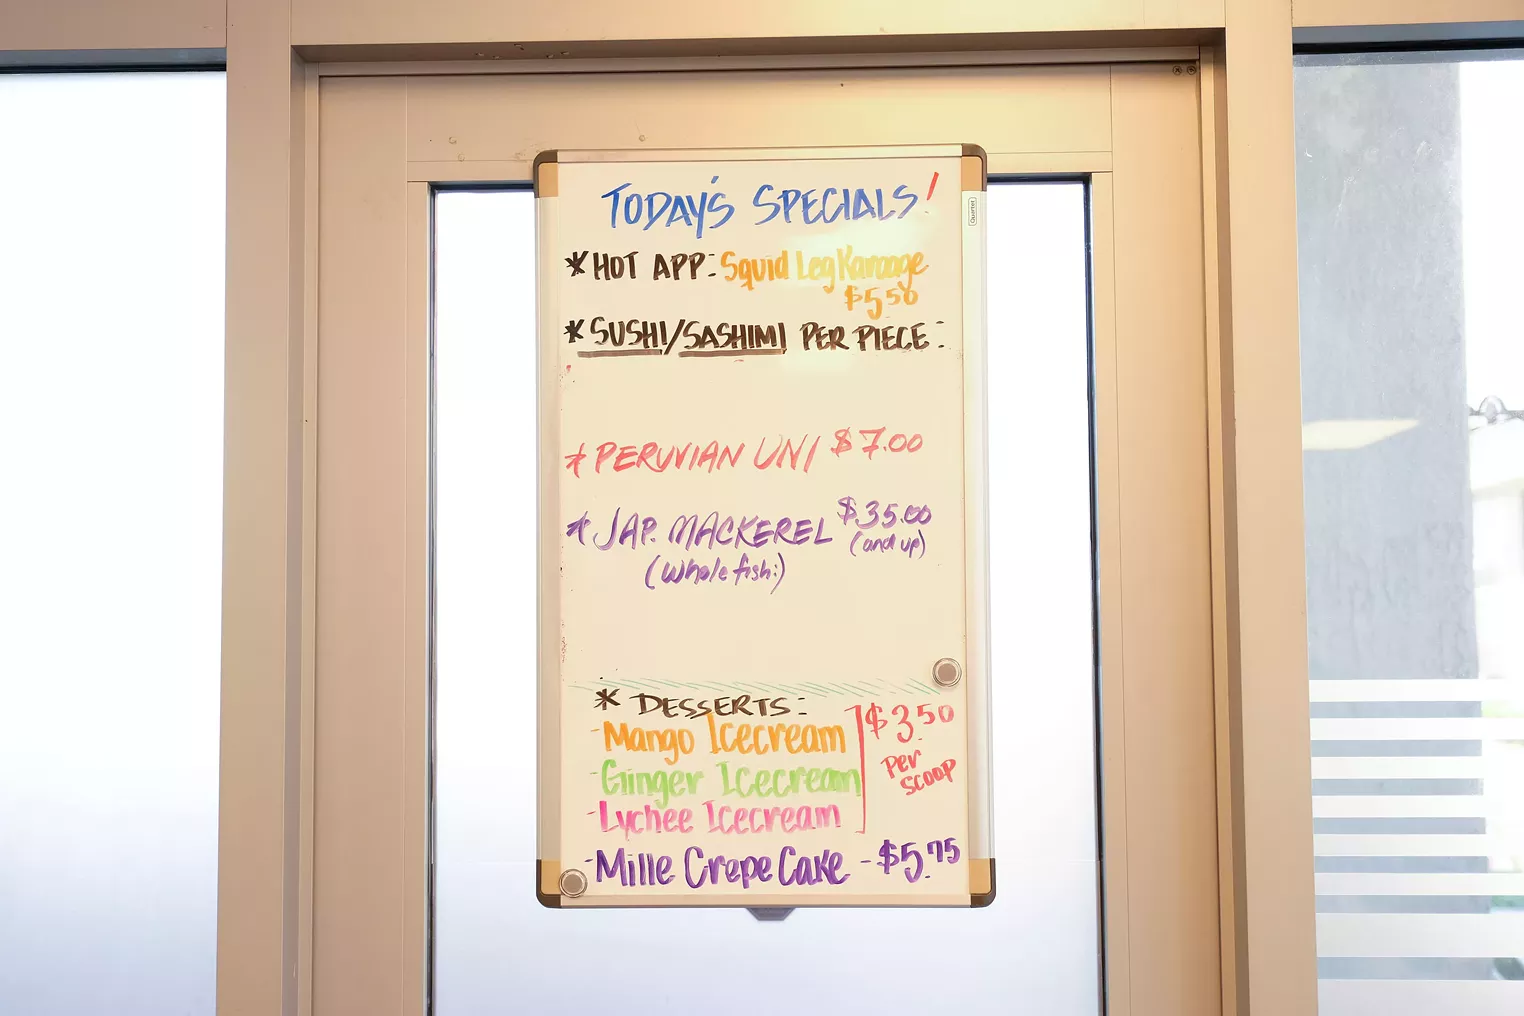 TODAY'S SPECIALS!
* HOT APP: Squid Leg Karaage
$5.50
* SUSHI/SASHIMI PER PIECE:
* PERUVIAN UNI $7.00
* JAP. MACKEREL $35.00
(Whole fish:) (and up)
* DESSERTS:
- Mango Icecream
- Ginger Icecream
- Lychee Icecream
$3.50
Per
Scoop
- Mille Crepe Cake - $5.75
Quartet